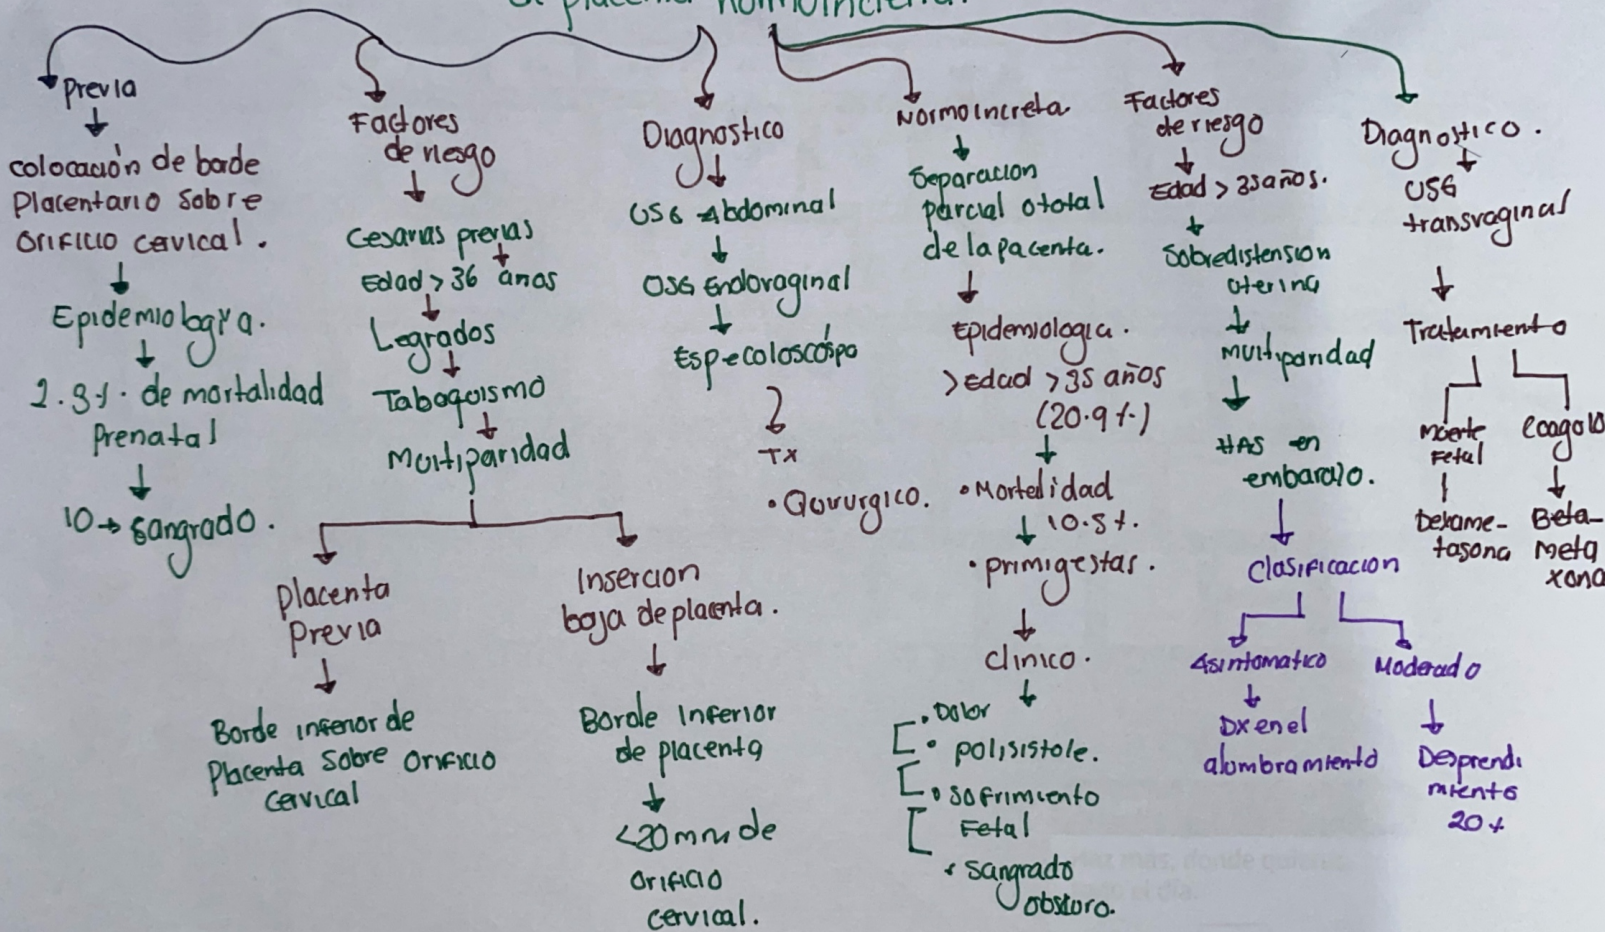 placenta normoincreta
Previa
colocación de borde
Placentario Sobre
orificio cervical.
Epidemiologya.
2.3%. de mortalidad
Prenatal
10→ sangrado.
Factores
de riesgo
Cesarias previas
Edad > 36 años
Legrados
Tabaquismo
Multiparidad
Placenta
Previa
Borde inferior de
Placenta Sobre Orificio
Cervical
Insercion
baja de placenta.
Borde Inferior
de placenta
<20 mm de
orificio
cervical.
Diagnostico
USG Abdominal
USG Endovaginal
Especoloscópo
TX
• Quirurgico.
Normoincreta
Separacion
parcial o total
de la pacenta.
Epidemiologia.
>Edad > 35 años
(20.9%)
• Mortalidad
10.5%.
• primigestas.
Clinico.
• Dolor
• polisistole.
• Sofrimiento
Fetal
• Sangrado
obscuro.
Factores
de riesgo
Edad > 35 años.
Sobredistension
uterina
Multiparidad
HAS en
embarazo.
Clasificacion
Asintomatico
Dx en el
alumbramiento
Moderado
Desprendi
miento
20%
Diagnostico.
USG
transvaginal
Tratamiento
Muerte
Fetal
Dexame-
tasona
Coagulo
Beta-
meta
xona